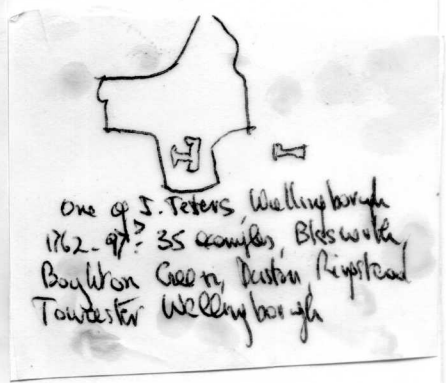 one of J. Peters, Wellingborough
1762-97? 35 examples, Blisworth,
Boughton Green, Duston, Ringstead
Towcester Wellingborough